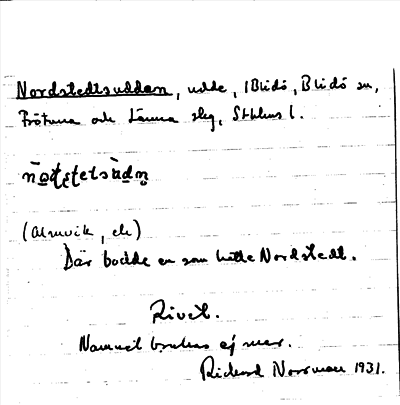 Nordstedtsudden, udde, i Blidö, Blidö sn,
Frötuna och Länna slg, Sthlms l.
(Almvik, ch)
Där bodde en som hette Nordstedt.
Rivet.
Namnet brukas ej mer.
Rickard Norrman 1931.